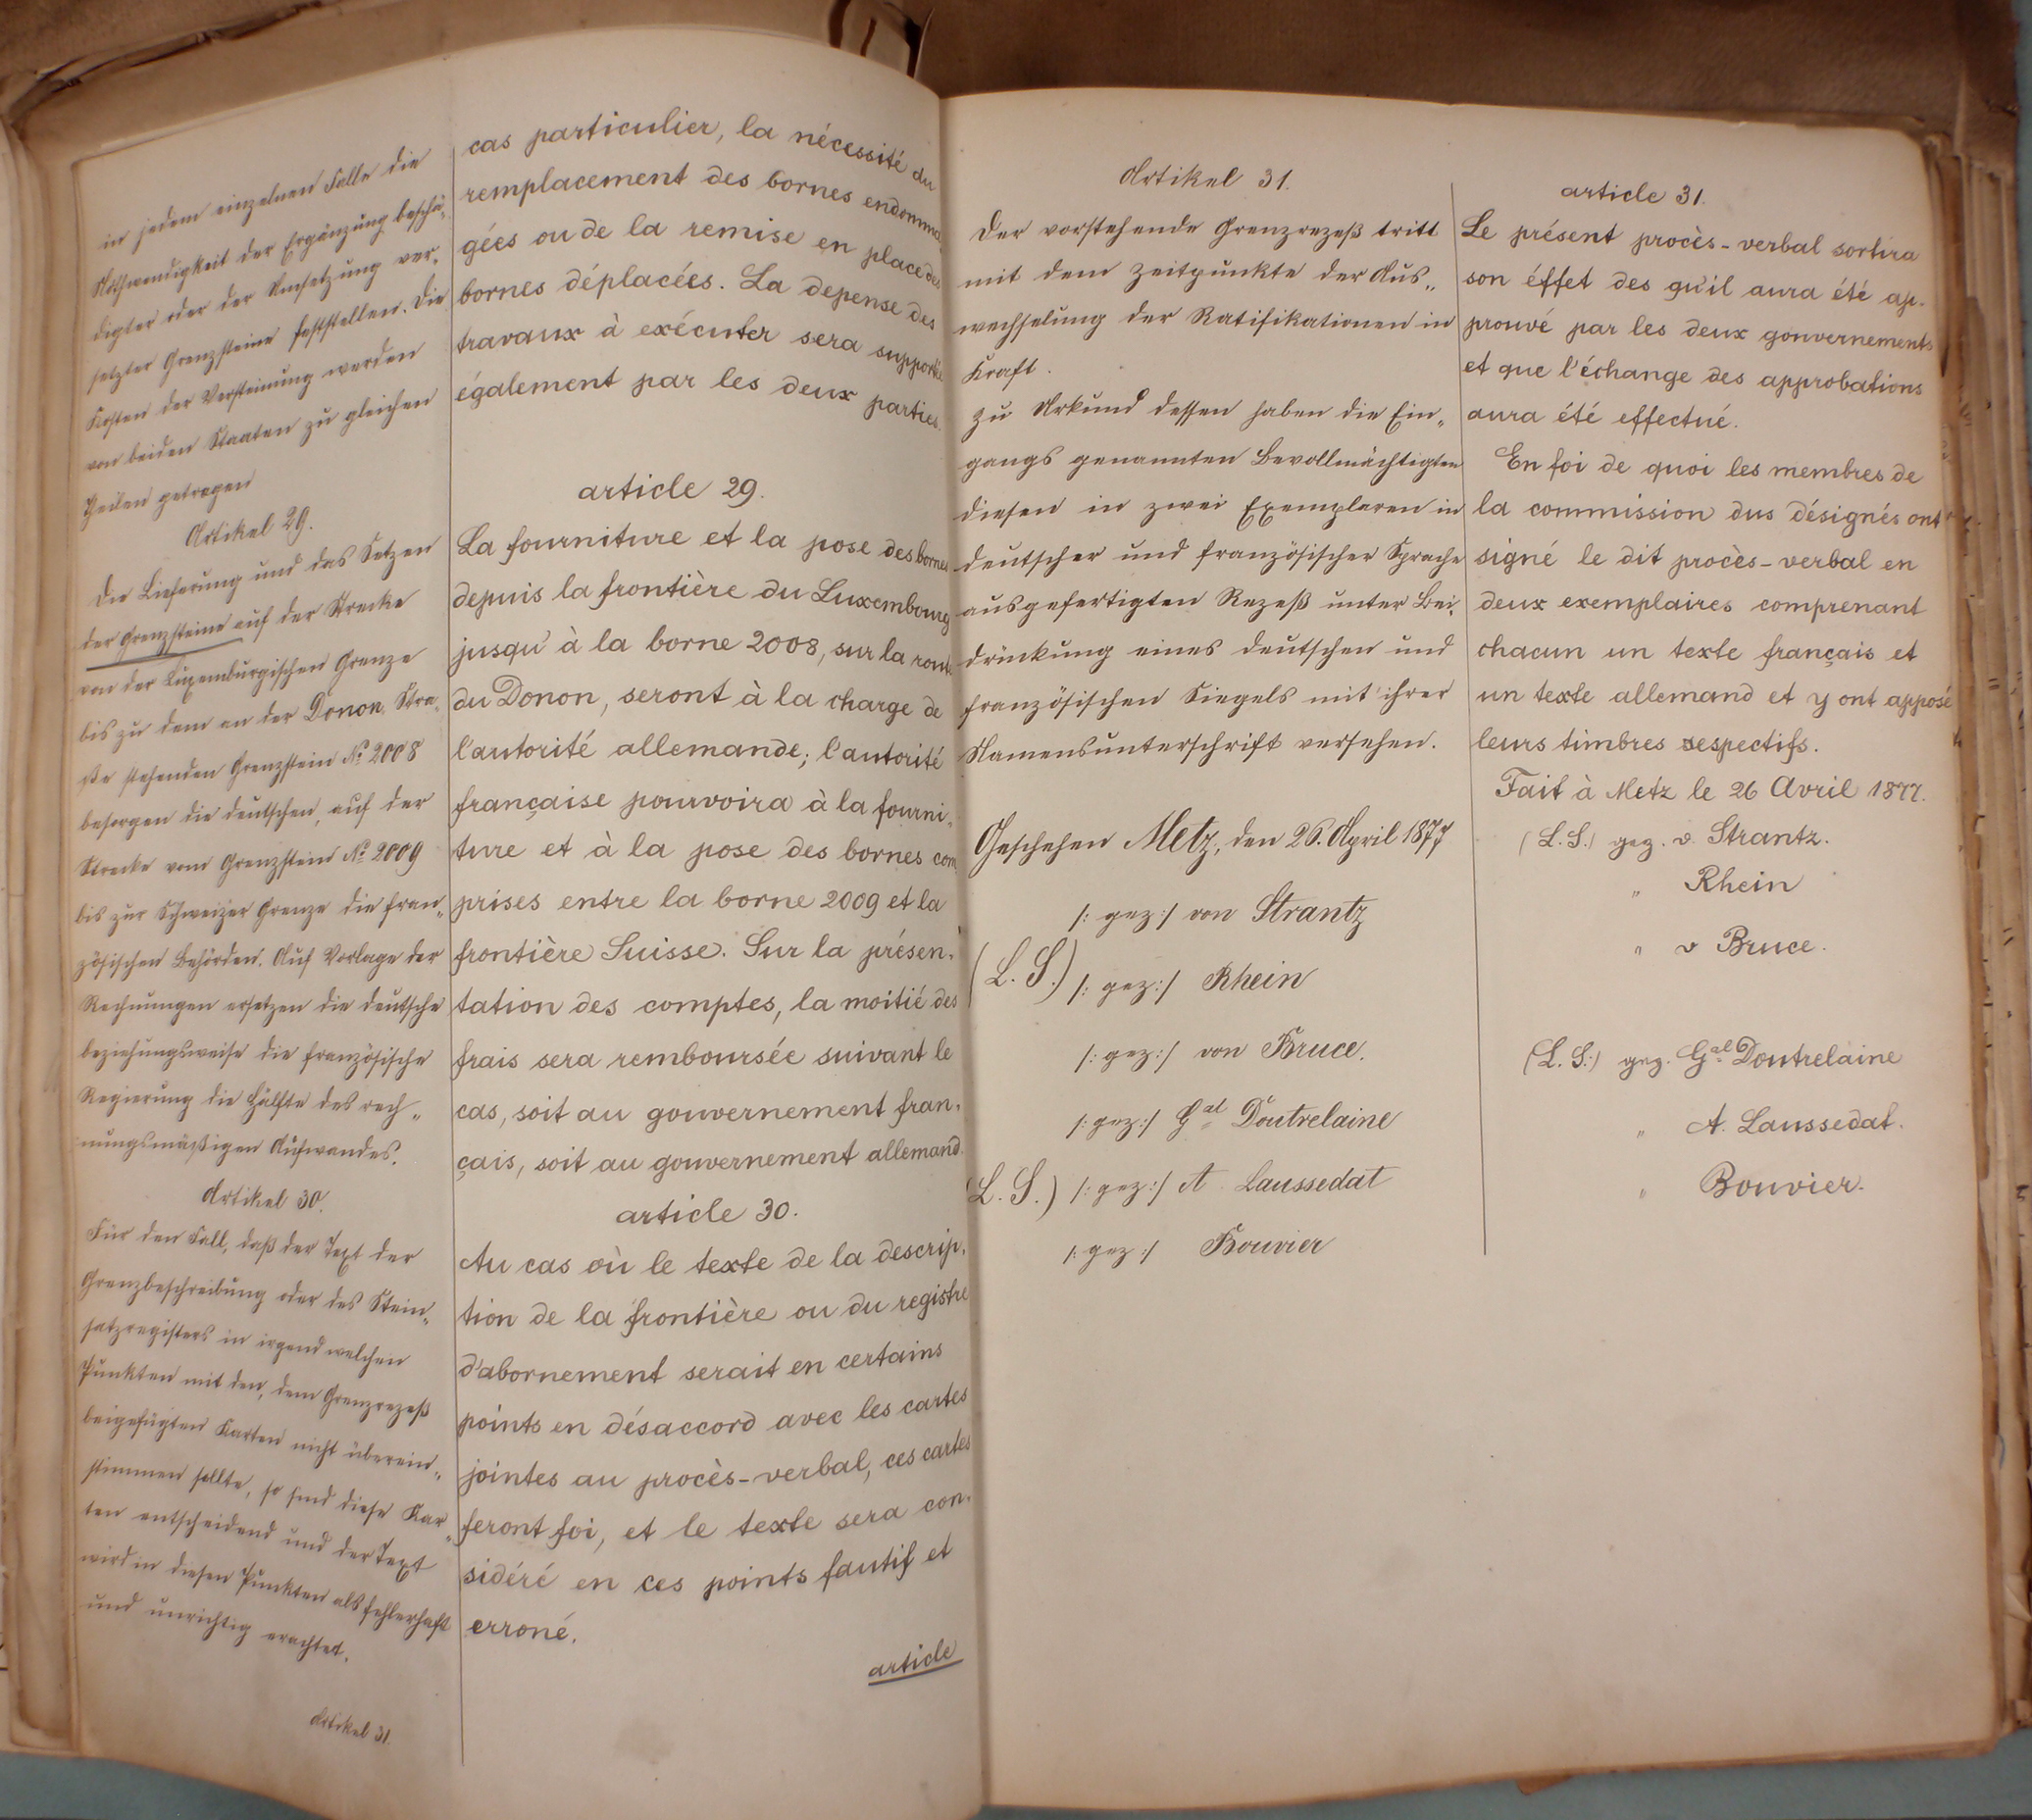 in jedem einzelnen Falle die
Nothwendigkeit der Ergänzung beschä-
digter oder der Umsetzung ver-
setzter Grenzsteine feststellen. Die
Kosten der Versteinung werden
von beiden Staaten zu gleichen
Theilen getragen
Artikel 29.
Die Lieferung und das Setzen
der Grenzsteine auf der Strecke
von der Luxemburgischen Grenze
bis zu dem an der Donon Stra-
ße stehenden Grenzstein No 2008
besorgen die deutschen, auf der
Strecke vom Grenzstein No 2009
bis zur Schweizer Grenze die fran„
zösischen Behörden. Auf Vorlage der
Rechnungen ersetzen die deutsche
beziehungsweise die französische
Regierung die Hälfte des rech„
nungsmäßigen Aufwandes.
Artikel 30.
Für den Fall, daß der Text der
Grenzbeschreibung oder des Stein„
satzregisters in irgend welchen
Punkten mit den, dem Grenzrezeß
beigefügten Karten nicht überein„
stimmen sollte, so sind diese Kar„
ten entscheidend und der Text
wird in diesen Punkten als fehlerhaft
und unrichtig erachtet.
Artikel 31.
cas particulier, la nécessité du
remplacement des bornes endomma-
gées ou de la remise en place des
bornes déplacées. La depense des
travaux à exécuter sera supportée
également par les deux parties.
article 29.
La fourniture et la pose des bornes
depuis la frontière du Luxembourg
jusqu'à la borne 2008, sur la route
du Donon, seront à la charge de
l'autorité allemande; l'autorité
française pourvoira à la fourni-
ture et à la pose des bornes com
prises entre la borne 2009 et la
frontière Suisse. Sur la présen-
tation des comptes, la moitié des
frais sera remboursée suivant le
cas, soit au gouvernement fran-
çais, soit au gouvernement allemand.
article 30.
Au cas où le texte de la descrip-
tion de la frontière ou du registre
d'abornement serait en certains
points en désaccord avec les cartes
jointes au procès-verbal, ces cartes
feront foi, et le texte sera con-
sidéré en ces points fautif et
erroné.
article
Artikel 31.
Der vorstehende Grenzrezeß tritt
mit dem Zeitpunkte der Aus„
wechselung der Ratifikationen in
Kraft.
Zu Urkund dessen haben die Ein„
gangs genannten Bevollmächtigten
diesen in zwei Exemplaren in
deutscher und französischer Sprache
ausgefertigten Rezeß unter Bei-
drückung eines deutschen und
französischen Siegels mit ihrer
Namensunterschrift versehen.
Geschehen Metz, den 26. April 1877
/: gez:/ von Strantz
(L. S.) /: gez:/ Rhein
/: gez:/ von Bruce.
/: gez:/ Gal Doutrelaine
L. S.) /: gez:/ A. Laussedat
/: gez:/ Bouvier
article 31.
Le présent procès-verbal sortira
son éffet des qu'il aura été ap-
prouvé par les deux gouvernements
et que l'échange des approbations
aura été effectué.
En foi de quoi les membres de
la commission dus désignés ont
signé le dit procès-verbal en
deux exemplaires comprenant
chacun un texte français et
un texte allemand et y ont apposé
leurs timbres respectifs.
Fait à Metz le 26 Avril 1877.
(L. S.) gez. v. Strantz.
„ Rhein
„ v Bruce.
(L. S.) gez. Gal Doutrelaine
„ A. Laussedat.
„ Bouvier.